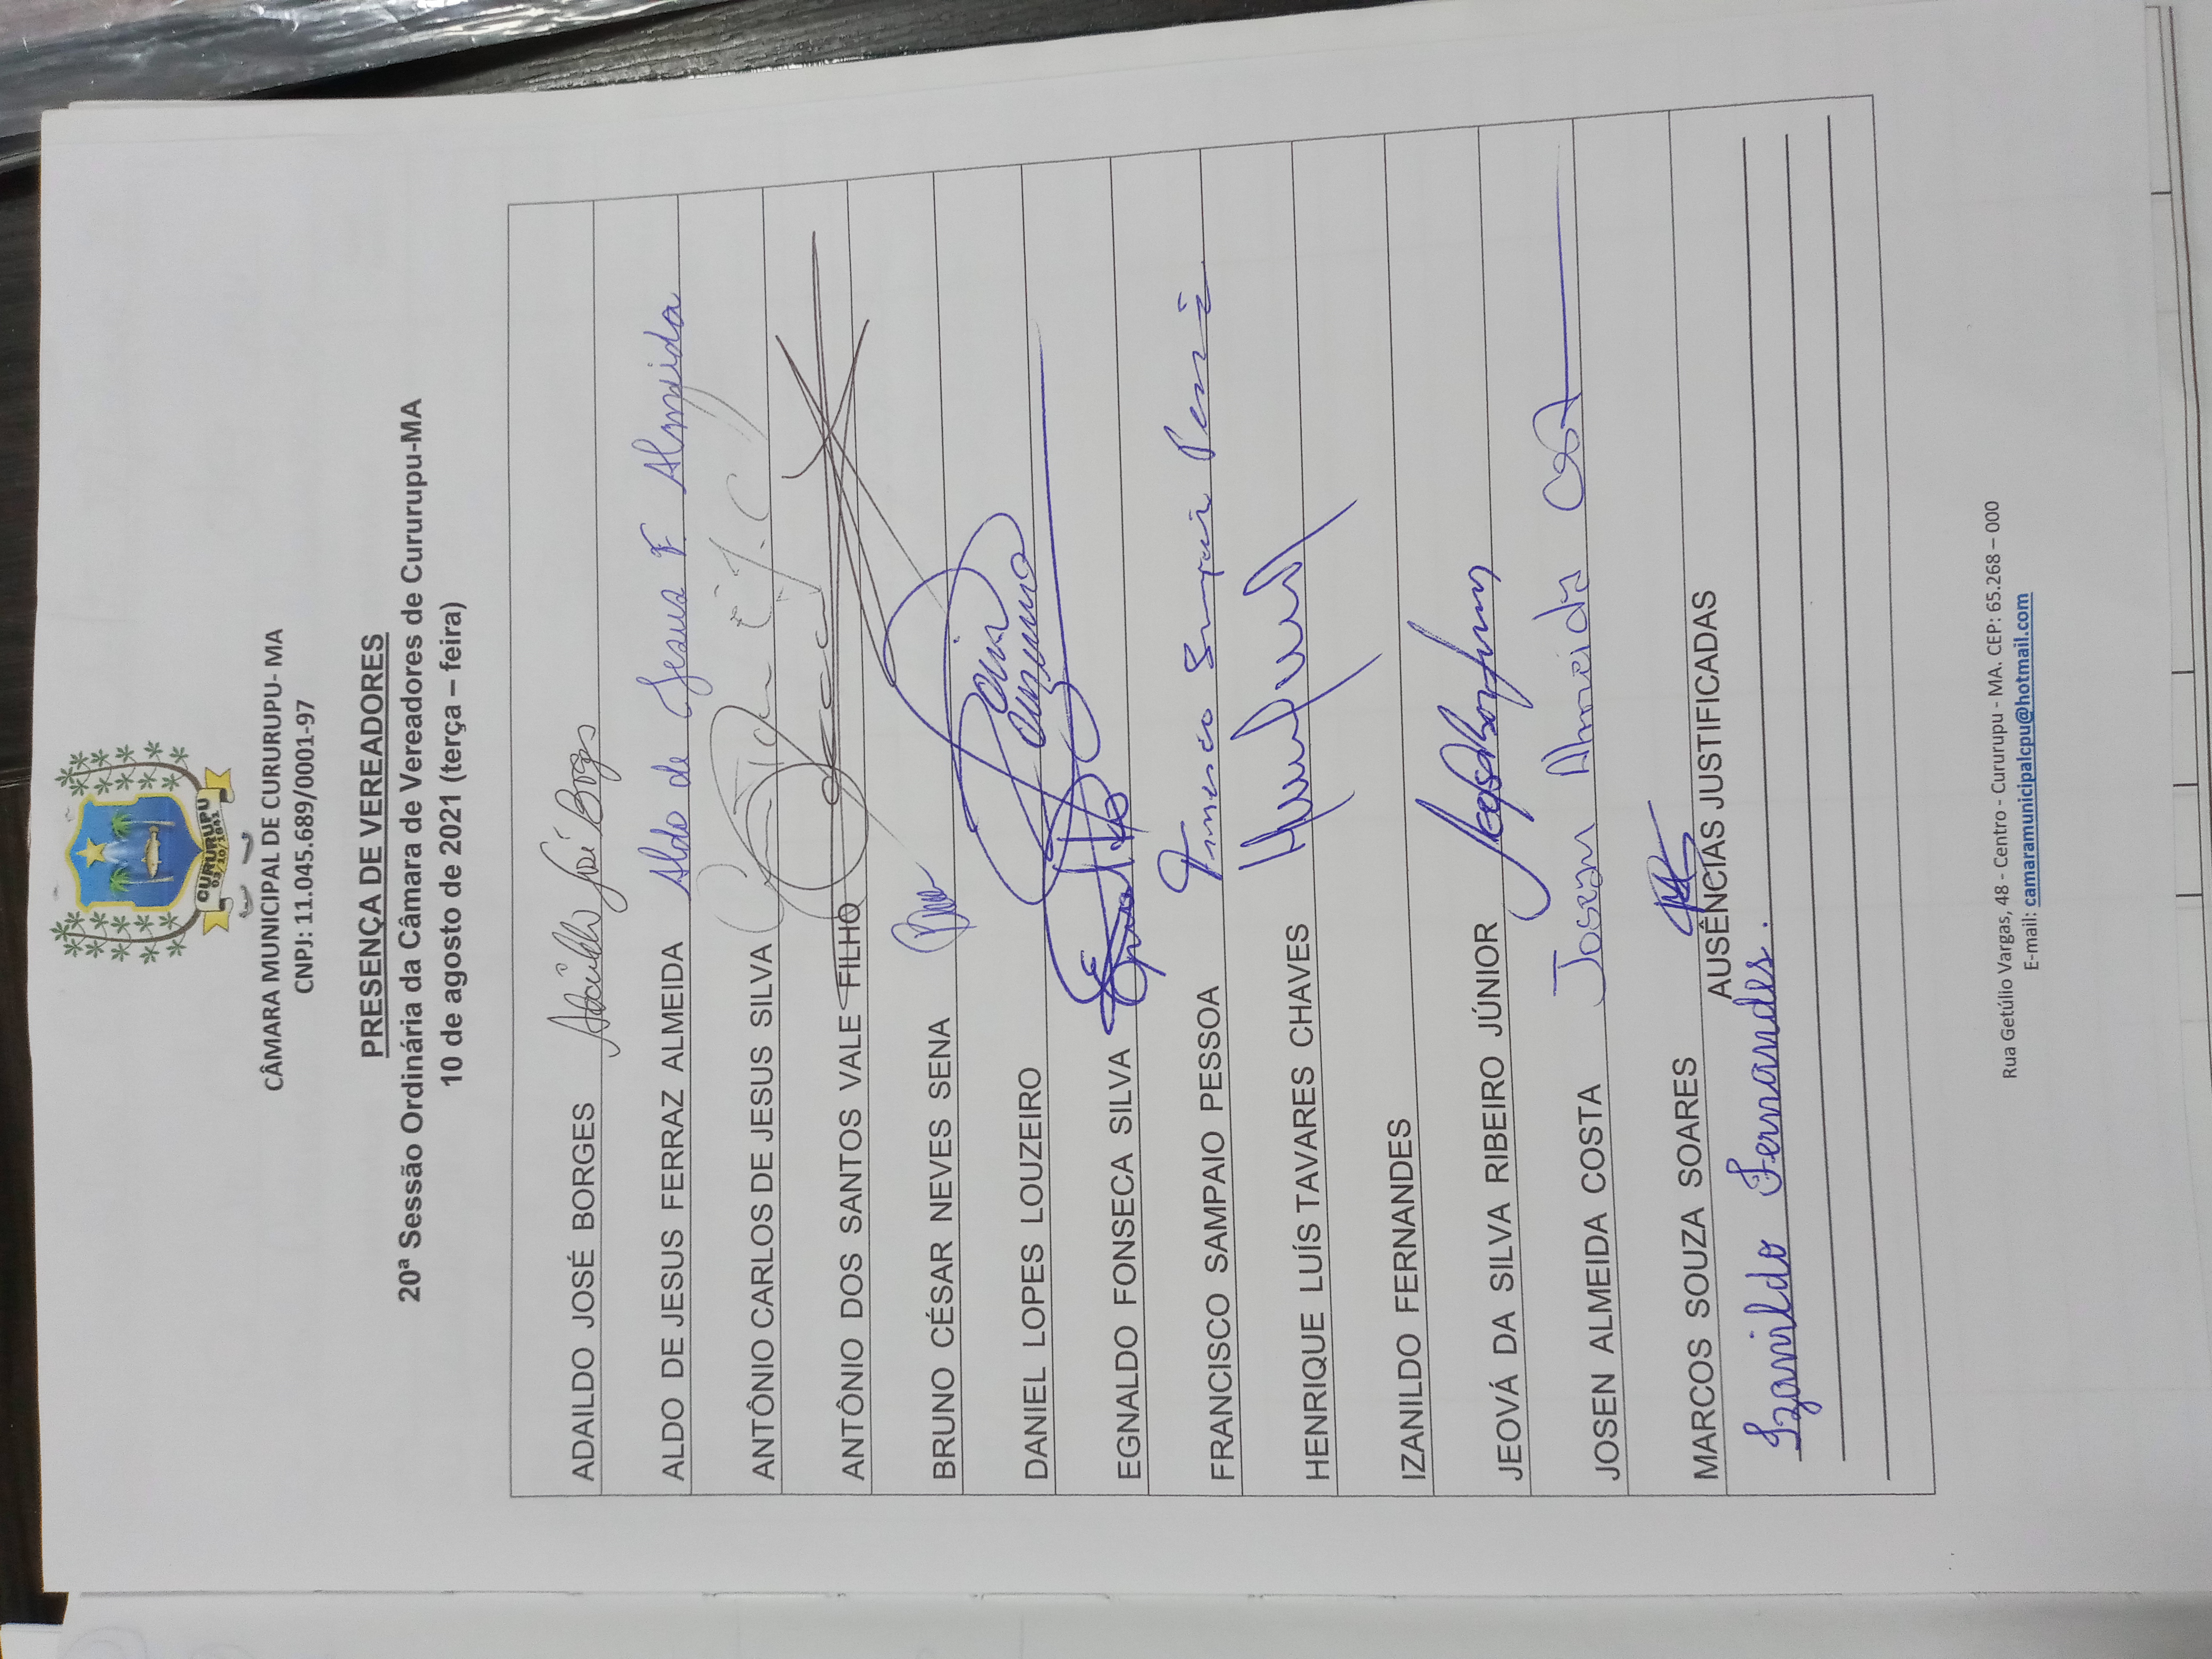 CURURUPU
03/10/1841
CÂMARA MUNICIPAL DE CURURUPU- MA
CNPJ: 11.045.689/0001-97
PRESENÇA DE VEREADORES
20ª Sessão Ordinária da Câmara de Vereadores de Cururupu-MA
10 de agosto de 2021 (terça – feira)
ADAILDO JOSÉ BORGES Adaildo José Borges
ALDO DE JESUS FERRAZ ALMEIDA Aldo de Jesus F Almeida
ANTÔNIO CARLOS DE JESUS SILVA
ANTÔNIO DOS SANTOS VALE FILHO
BRUNO CÉSAR NEVES SENA
DANIEL LOPES LOUZEIRO
EGNALDO FONSECA SILVA
FRANCISCO SAMPAIO PESSOA Francisco Sampaio
HENRIQUE LUÍS TAVARES CHAVES
IZANILDO FERNANDES
JEOVÁ DA SILVA RIBEIRO JÚNIOR
JOSEN ALMEIDA COSTA Josen Almeida Costa
MARCOS SOUZA SOARES
AUSÊNCIAS JUSTIFICADAS
Izanildo Fernandes.
Rua Getúlio Vargas, 48 - Centro - Cururupu - MA. CEP: 65.268 – 000
E-mail: camaramunicipalcpu@hotmail.com